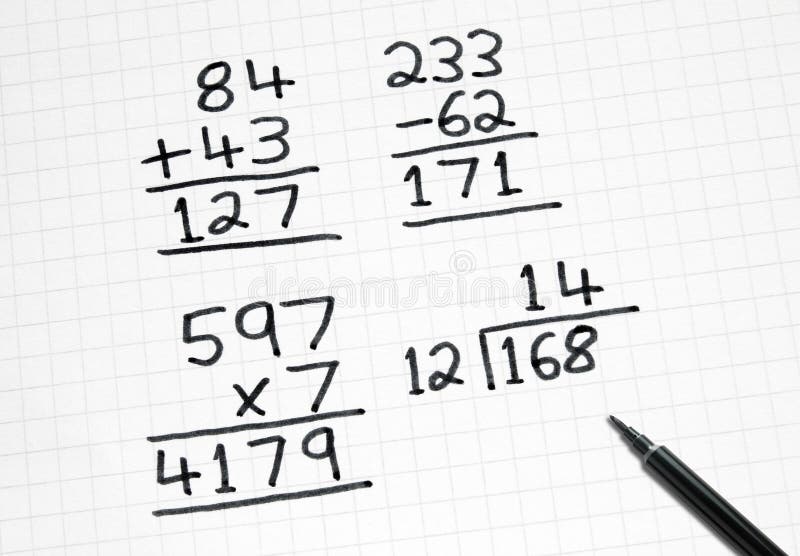 84
+43
127
233
-62
171
597
x7
4179
14
12 168
dreamstime